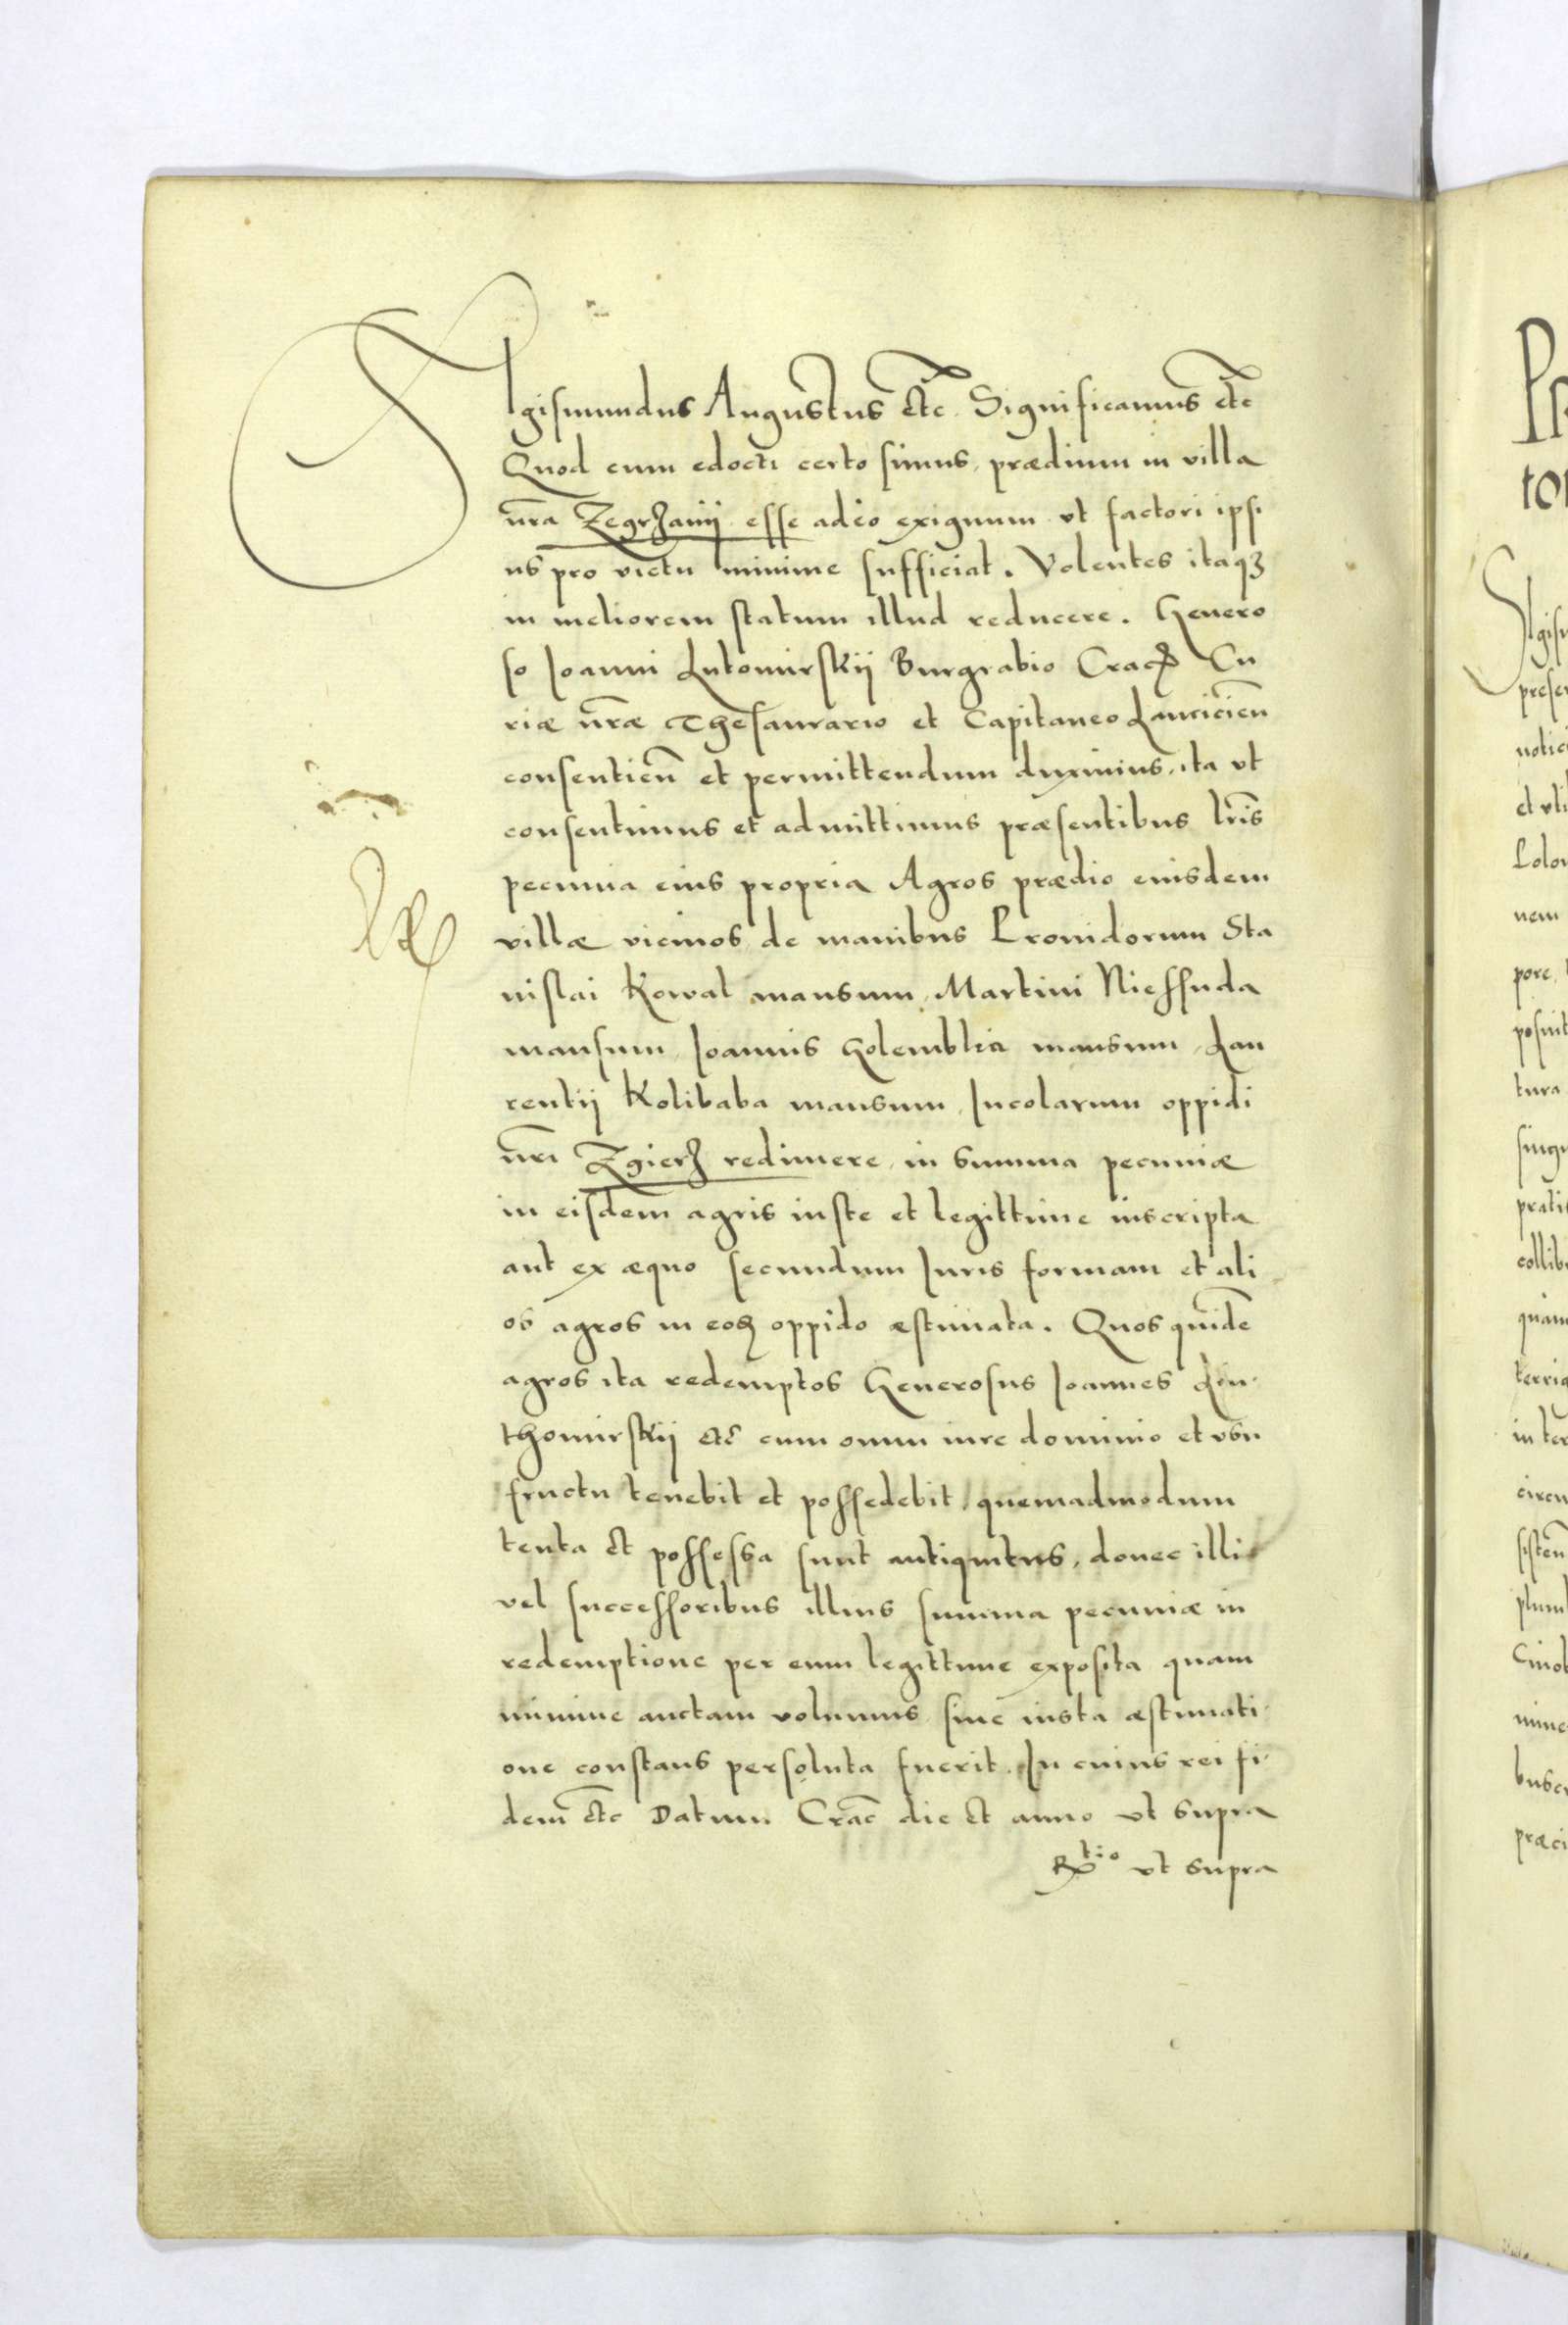 Sigismundus Augustus etc Significamus etc
Quod cum edocti certo simus, prædium in villa
nra Zegrzanij esse adeo exiguum vt factori ipsi
us pro victu minime sufficiat. Volentes itaqȝ
in meliorem statum illud reducere. Genero
so Ioanni Lutomirskij Burgrabio Crac Cu
riæ nræ Thesaurario et Capitaneo Lancicien
consentien et permittendum duximus, ita vt
consentimus et admittimus præsentibus lris
pecunia eius propria Agros prædio eiusdem
villæ vicinos de manibus Prouidorum Sta
nislai Kowal mansum, Martini Niessuda
mansum, Ioannis Golemblia mansum, Lau
rentij Kolibaba mansum, Incolarum oppidi
nri Zgierz redimere, in summa pecuniæ
in eisdem agris iuste et legittime inscripta
aut ex æquo secundum Iuris formam et ali
os agros in eod oppido æstimata. Quos quide
agros ita redemptos Generosus Ioannes Lu
thomirskij etc cum omni iure dominio et vsu
fructu tenebit et possedebit, quemadmodum
tenta et possessa sunt antiquitus, donec illi
vel successoribus illius summa pecuniæ in
redemptione per eum legittime exposita quam
minime auctam volumus siue iusta æstimati
one constans persoluta fuerit. In cuius rei fi
dem etc Datum Crac die et anno vt supra
Rtio vt supra